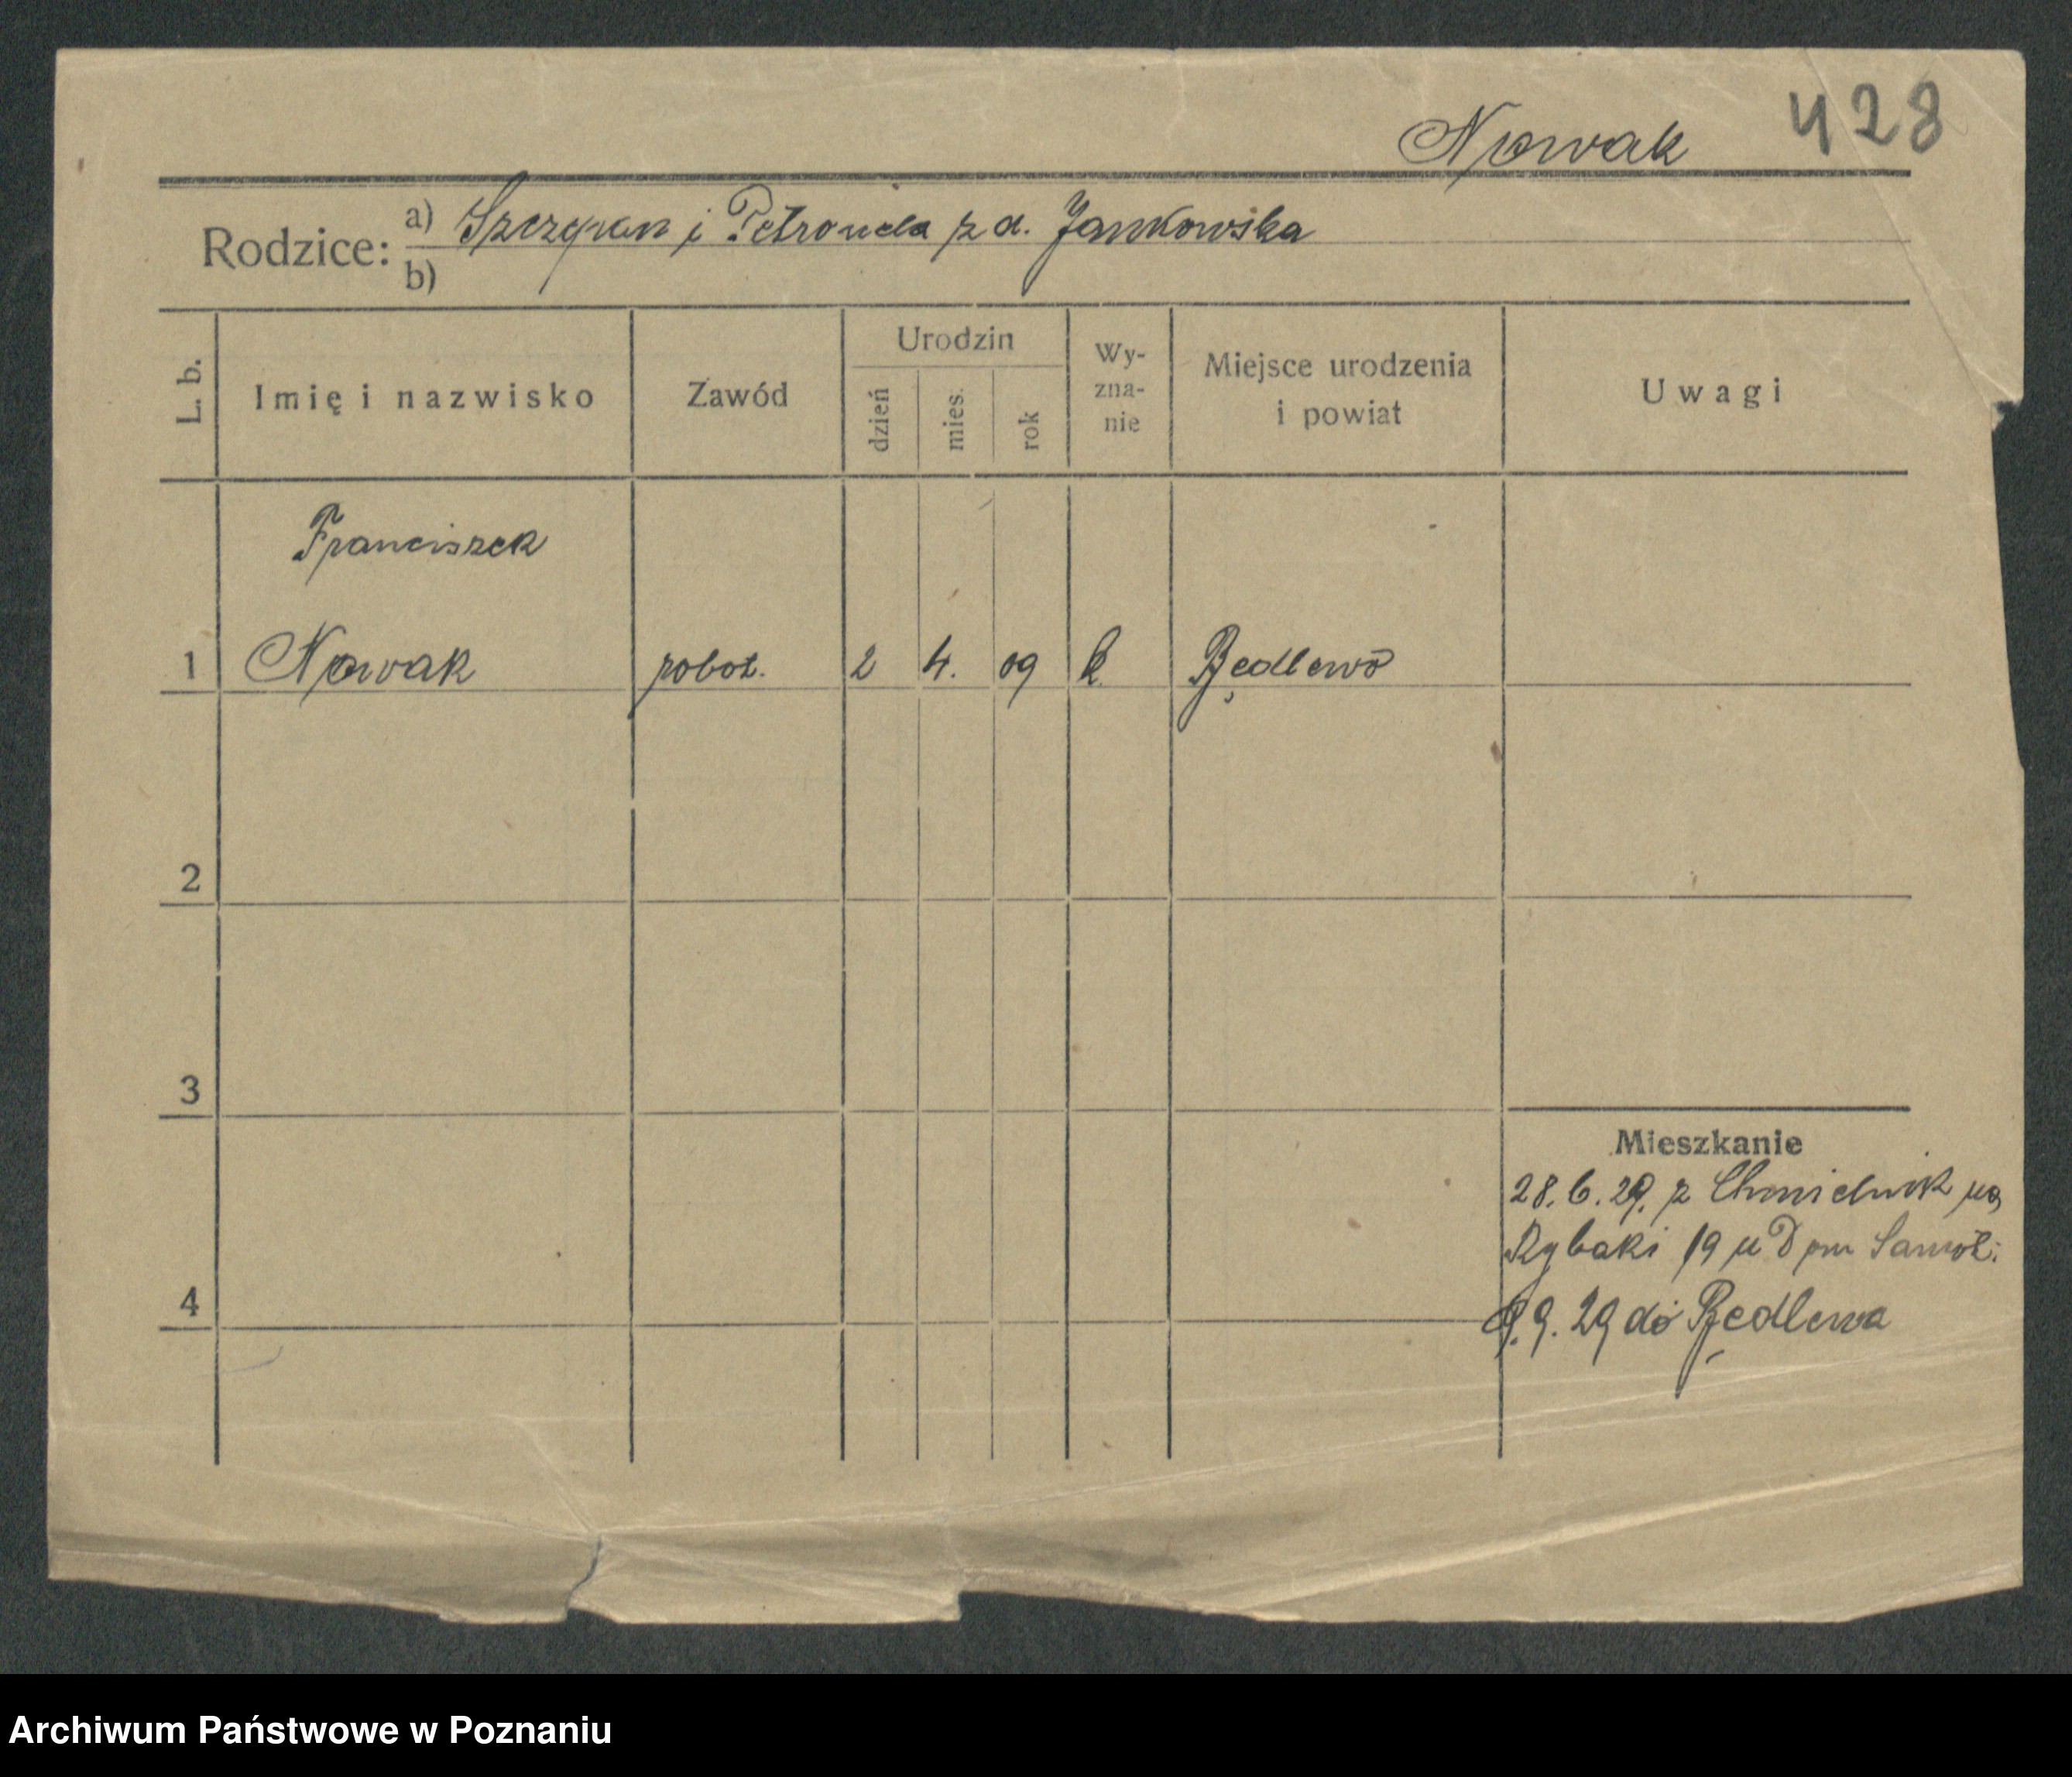 Nowak 428
Rodzice: a) Szczepan i Petronela z d. Jankowska
b)
L. b. Imię i nazwisko Zawód Urodzin dzień mies. rok Wy-zna-nie Miejsce urodzenia i powiat Uwagi
Franciszek
1 Nowak robot. 2 4. 09 k. Będlewo
2
3
Mieszkanie
28. 6. 29. z Chmielnik na
Rybaki 19 u
4
9. 29 do Będlewa
Archiwum Państwowe w Poznaniu